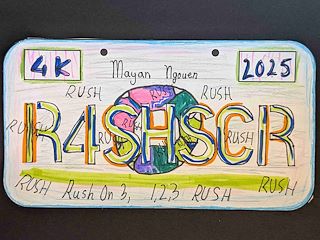 4K 2025
Mayan Ngouen
RUSH RUSH
R4SHSCR
RUSH RUSH RUSH
RUSH Rush On 3, 1,2,3 RUSH RUSH